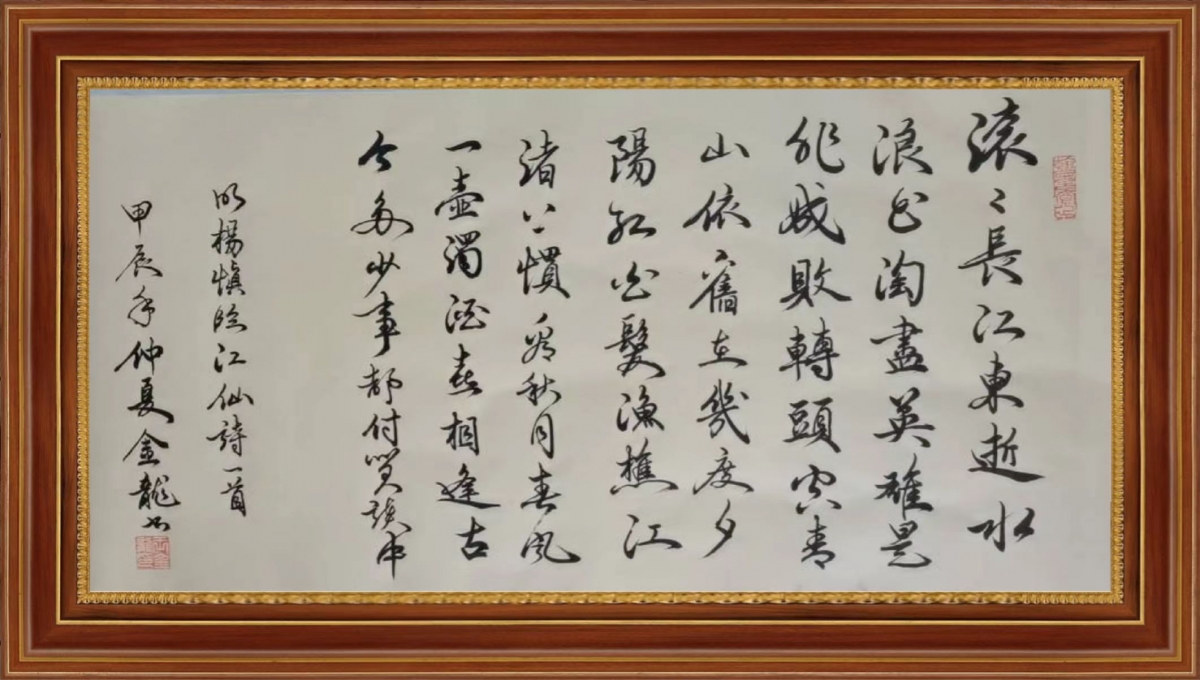 滚々長江東逝水
浪花淘盡英雄是
非成敗轉頭空青
山依舊在幾度夕
陽紅白髮漁樵江
渚上慣看秋月春風
一壺濁酒喜相逢古
今多少事都付笑談中
明楊慎臨江仙詩一首
甲辰年仲夏金龍書